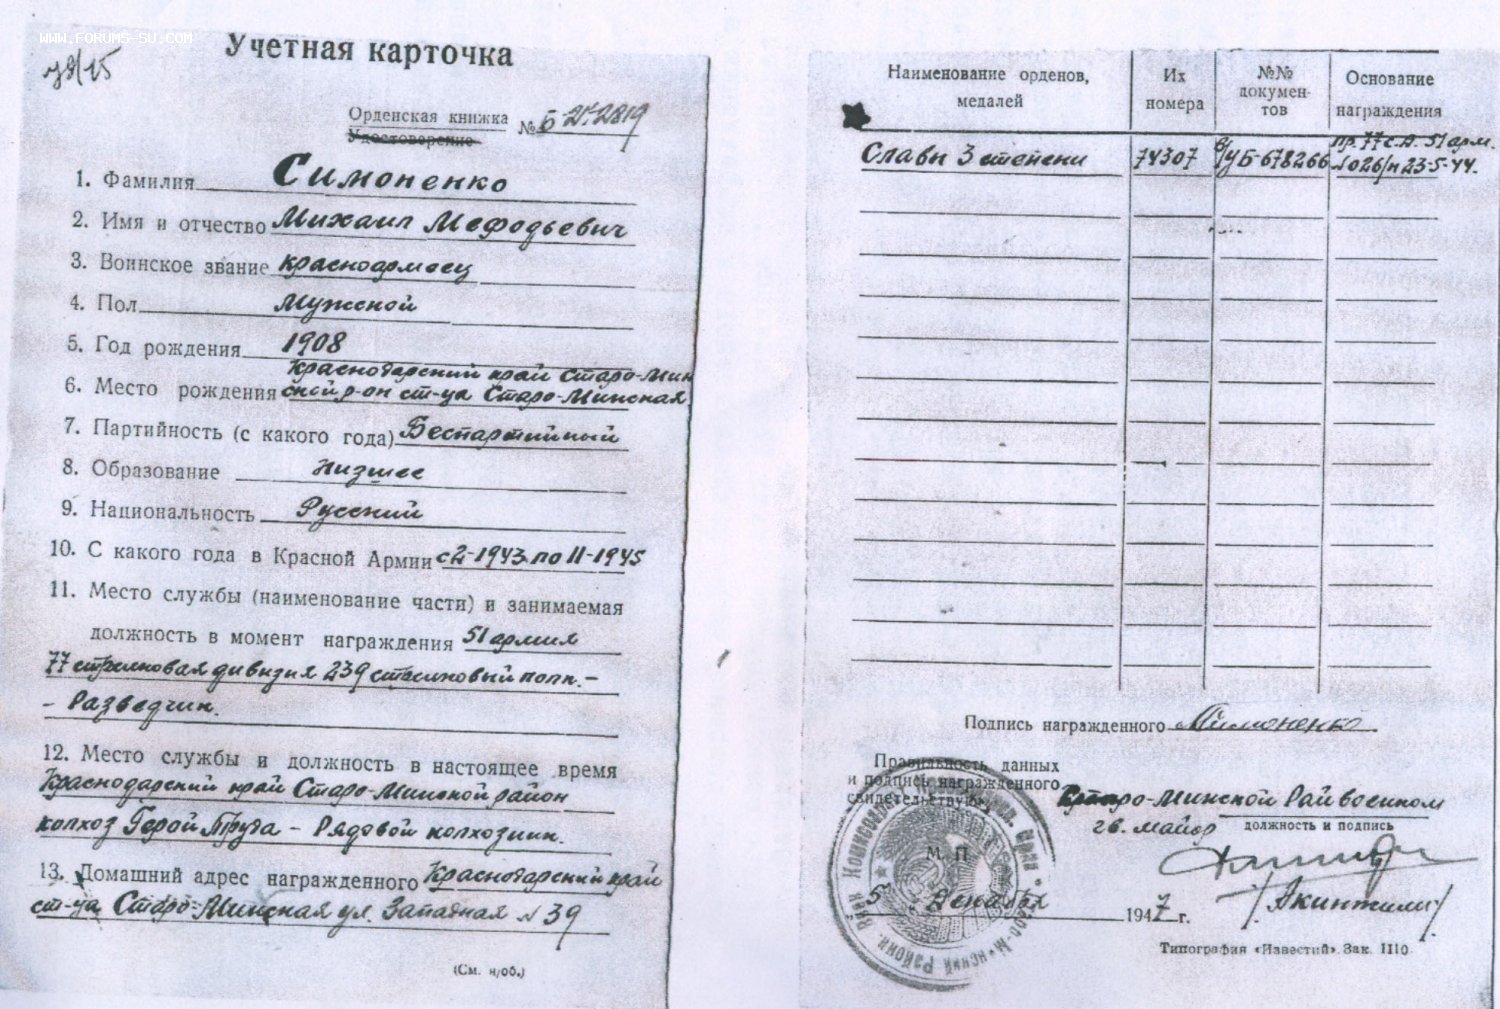 www.forums-su.com
Учетная карточка
Орденская книжка
Удостоверение
№ Б-212819
1. Фамилия Симоненко
2. Имя и отчество Михаил Мефодьевич
3. Воинское звание красноармеец
4. Пол Мужской
5. Год рождения 1908
Краснодарский край Старо-Мин
6. Место рождения ской р-он ст-ца Старо-Минская
7. Партийность (с какого года) Беспартийный
8. Образование низшее
9. Национальность Русский
10. С какого года в Красной Армии с 2-1943 по 11-1945
11. Место службы (наименование части) и занимаемая
должность в момент награждения 51 армия
77 стрелковая дивизия 239 стрелковый полк. -
- Разведчик.
12. Место службы и должность в настоящее время
Краснодарский край Старо-Минской район
колхоз Герой Труда - Рядовой колхозник.
13. Домашний адрес награжденного Краснодарский край
ст-ца Старо-Минская ул. Западная № 39
(См. н/об.)
Наименование орденов, медалей
Их номера
№№ документов
Основание награждения
Славы 3 степени 74307 УБ-678266 пр. 77 с.д. 51 арм.
№026/н 23-5-44.
Подпись награжденного Симоненко
Правильность данных
и подпись награжденного
свидетельствую:
Старо-Минской Райвоенком
гв. майор
должность и подпись
М. П.
5 Декабря 1947 г.
Типография «Известий». Зак. 1110.